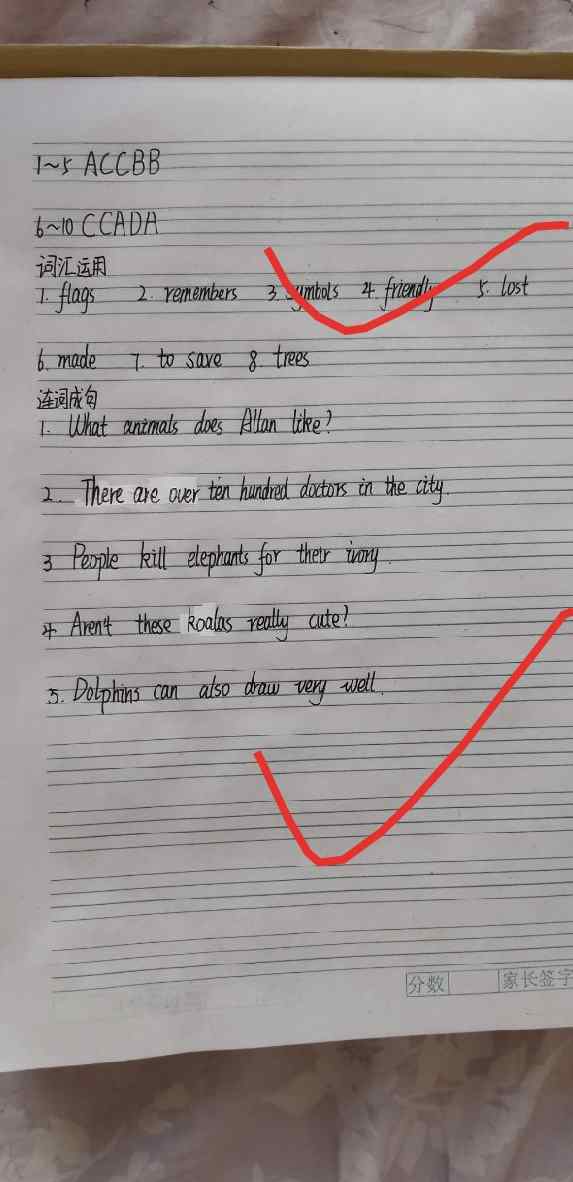 1~5 ACCBB
6~10 CCADA
词汇运用
1. flags 2. remembers 3. symbols 4. friendly 5. lost
6. made 7. to save 8. trees
连词成句
1. What animals does Allan like?
2. There are over ten hundred doctors in the city.
3 People kill elephants for their ivory.
4. Aren't these koalas really cute?
5. Dolphins can also draw very well.
分数 家长签字